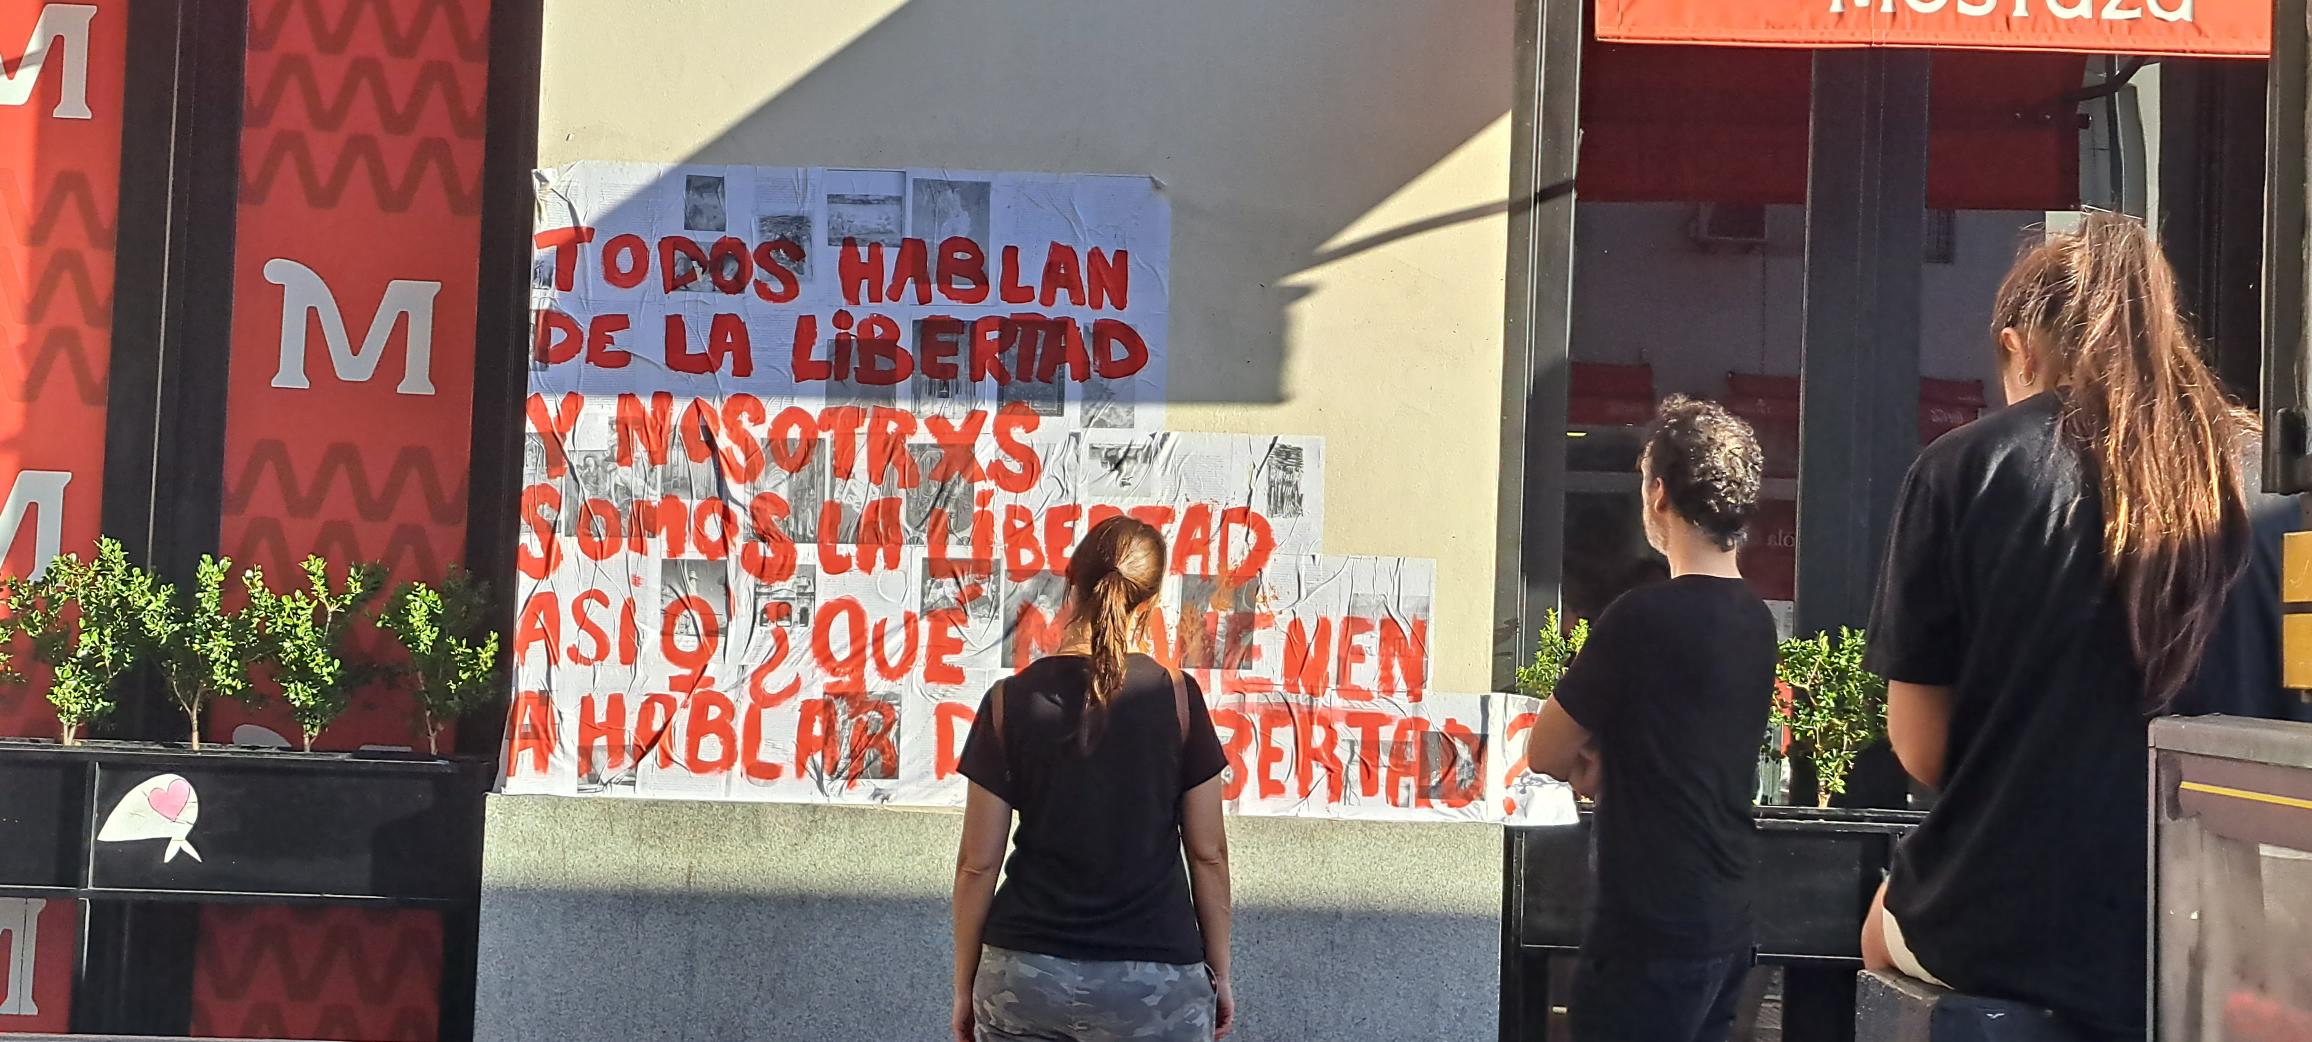 Mostaza
M
M
M
M
TODOS HABLAN
DE LA LiBERTAD
Y NOSOTRXS
SOMOS LA LiBERTAD
ASI O ¿QUÉ
A HABLAR